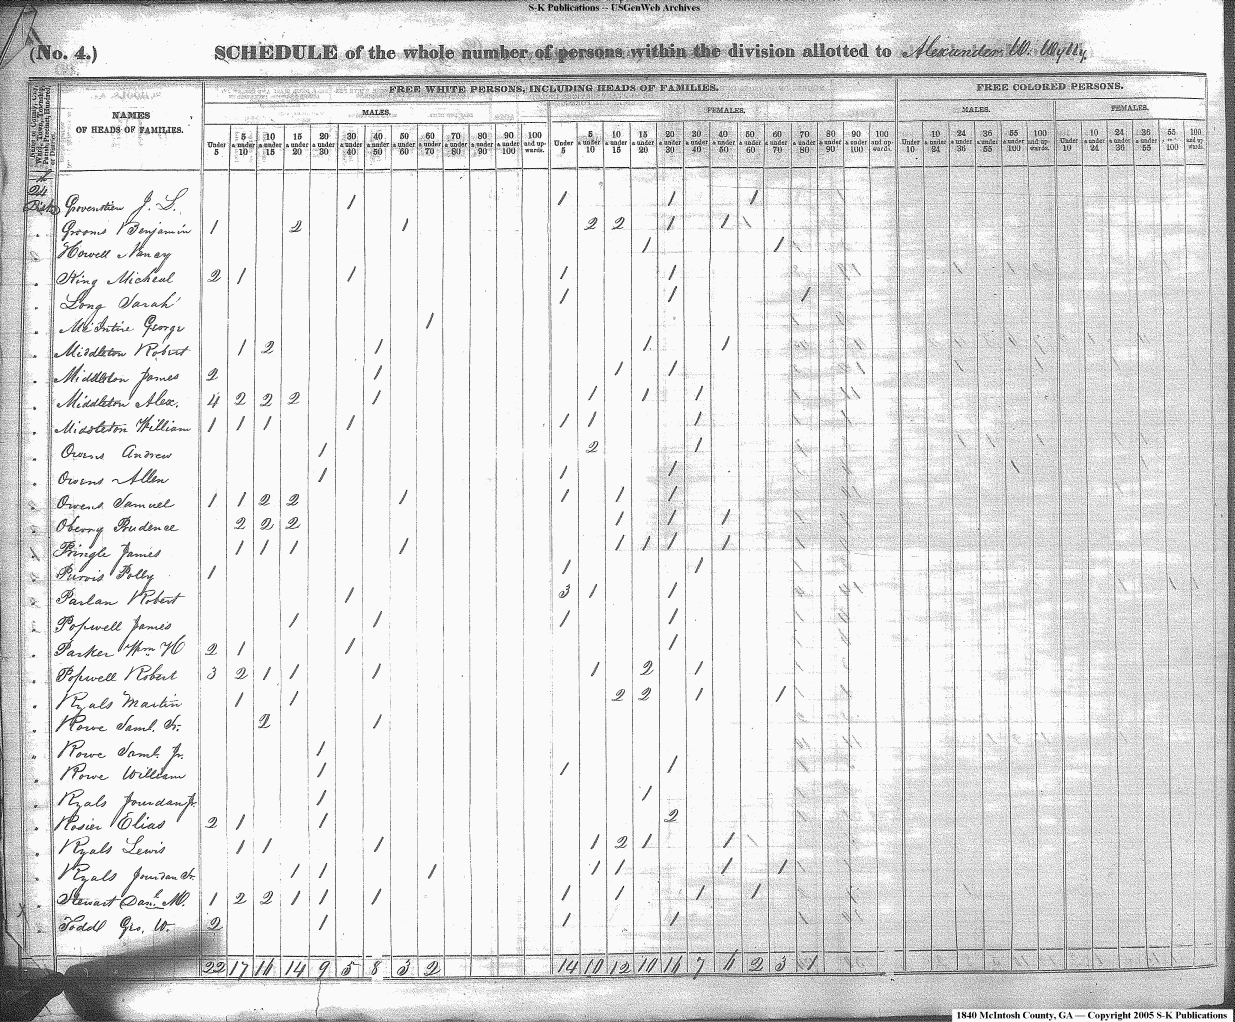 S-K Publications -- USGenWeb Archives
(No. 4.) SCHEDULE of the whole number of persons within the division allotted to Alexander W. Wylly.
NAMES OF HEADS OF FAMILIES.
FREE WHITE PERSONS, INCLUDING HEADS OF FAMILIES.
FREE COLORED PERSONS.
MALES. FEMALES. MALES. FEMALES.
Under 5 5 & under 10 10 & under 15 15 & under 20 20 & under 30 30 & under 40 40 & under 50 50 & under 60 60 & under 70 70 & under 80 80 & under 90 90 & under 100 100 and upwards.
Under 5 5 & under 10 10 & under 15 15 & under 20 20 & under 30 30 & under 40 40 & under 50 50 & under 60 60 & under 70 70 & under 80 80 & under 90 90 & under 100 100 and upwards.
Under 10 10 & under 24 24 & under 36 36 & under 55 55 & under 100 100 and upwards.
Under 10 10 & under 24 24 & under 36 36 & under 55 55 & under 100 100 and upwards.
24
J. S. 1 1 1 1
Grooms Benjamin 1 2 1 2 2 1 1 1
Howell Nancy 1 1
King Micheal 2 1 1 1 1
Long Sarah 1 1 1
McIntire George 1
Middleton Robert 1 2 1 1 1
Middleton James 2 1 1 1
Middleton Alex. 4 2 2 2 1 1 1 1
Middleton William 1 1 1 1 1 1 1
Owens Andrew 1 2 1
Owens Allen 1 1 1
Owens Samuel 1 1 2 2 1 1 1 1
Oberry Prudence 2 2 2 1 1 1
Pringle James 1 1 1 1 1 1 1 1
Purvis Polly 1 1 1
Parlan Robert 1 3 1 1
Popwell James 1 1 1 1
Parker Wm H 2 1 1 1
Popwell Robert 3 2 1 1 1 1 2 1
Ryals Martin 1 1 2 2 1 1
Rowe Saml. Sr. 2 1
Rowe Saml. Jr. 1
Rowe William 1 1 1
Ryals Jourdan Jr. 1 1
Rosier Elias 2 1 1 2
Ryals Lewis 1 1 1 1 2 1 1
Ryals Jourdan Sr. 1 1 1 1 1 1 1
Stewart Danl. M. 1 2 2 1 1 1 1 1 1 1
Todd Geo. W. 2 1 1 1
22 17 16 14 9 5 8 3 2 14 10 12 10 16 7 6 2 3 1
1840 McIntosh County, GA — Copyright 2005 S-K Publications